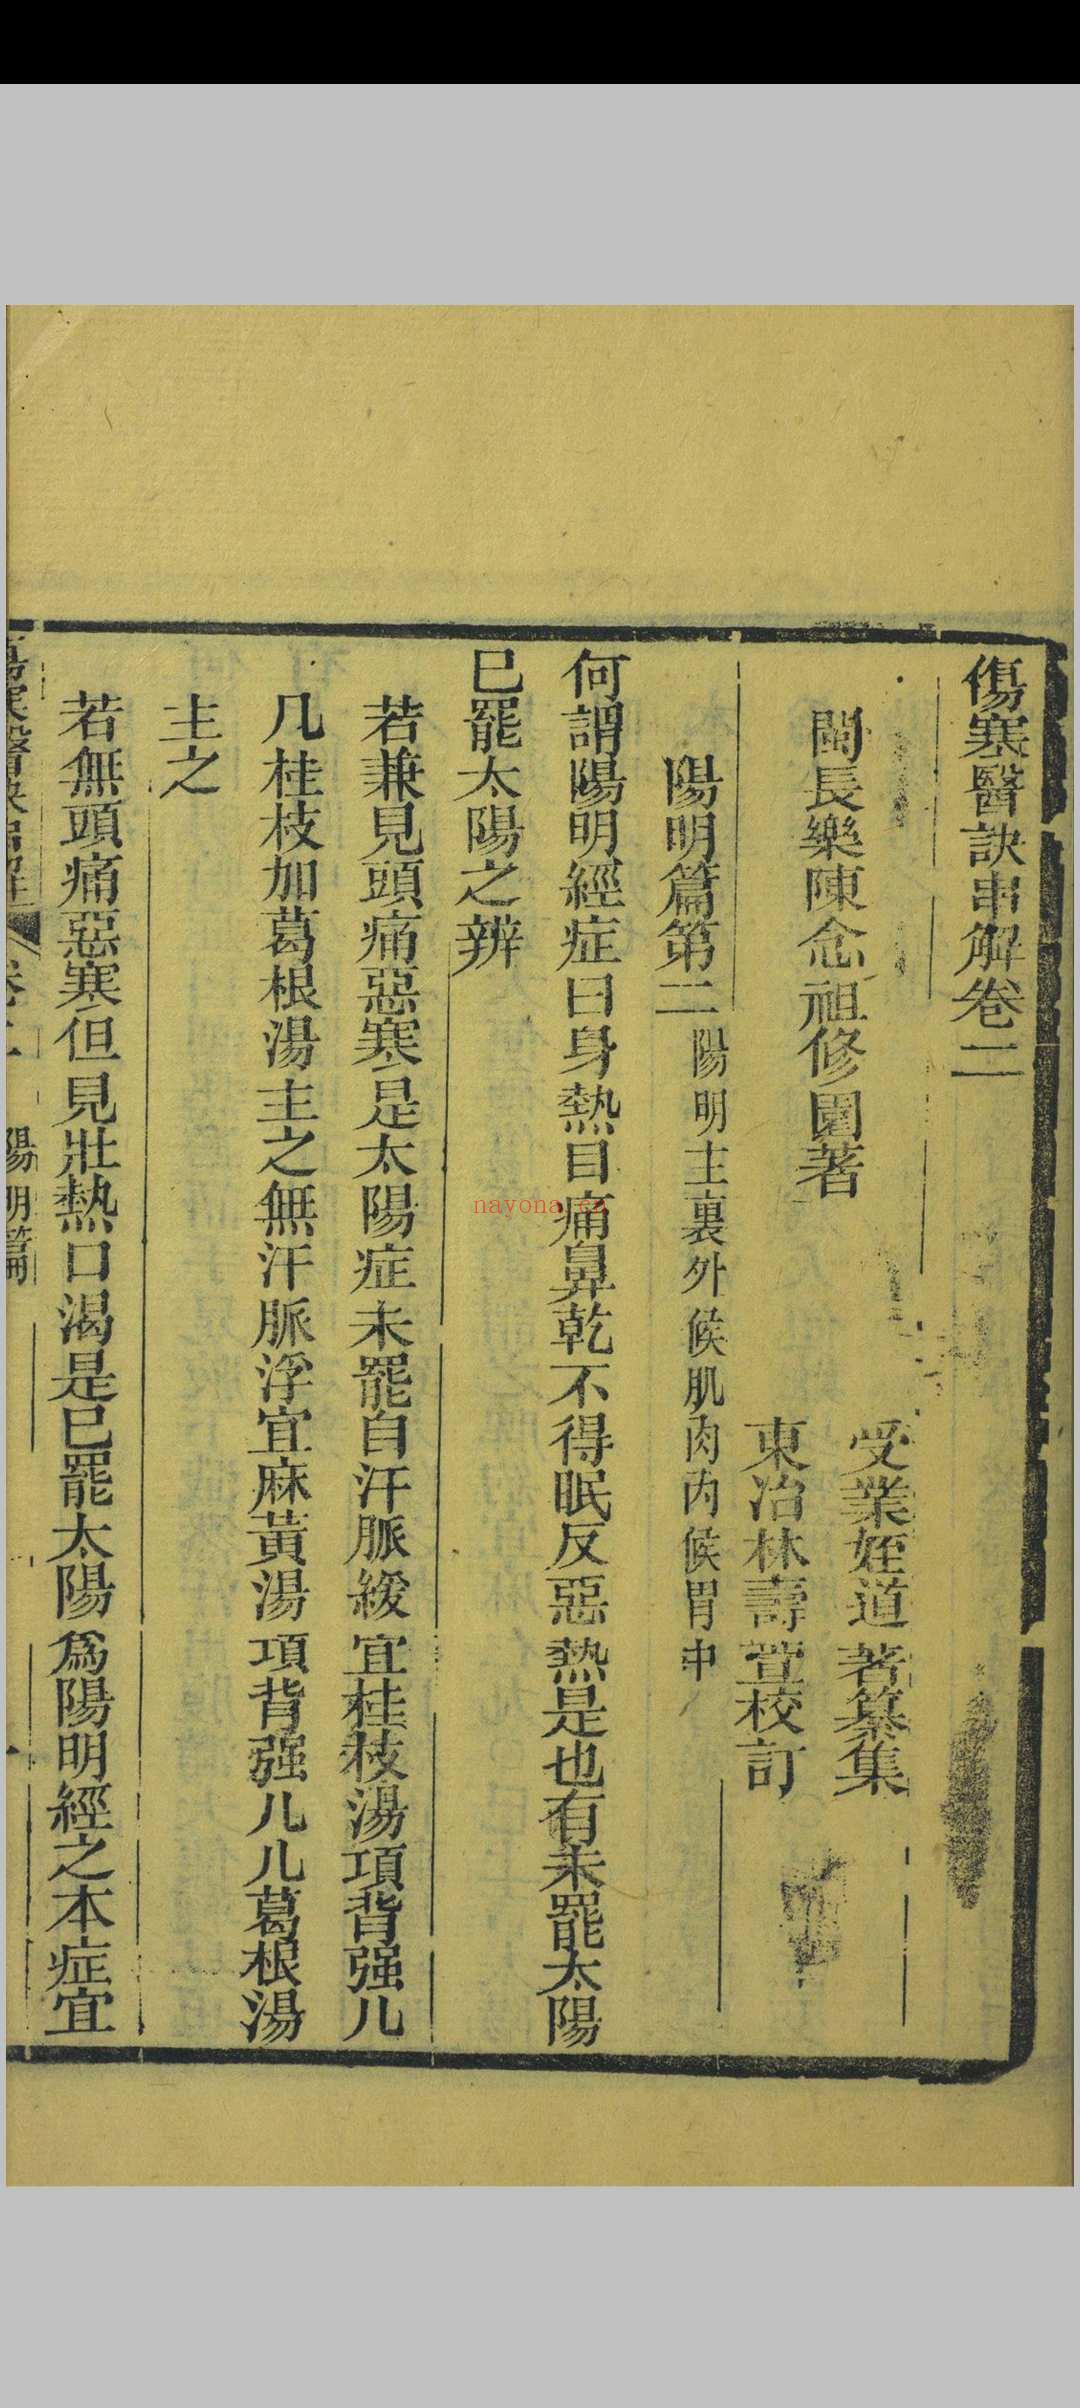 傷寒醫訣串解卷二
受業姪道著纂集
閩長樂陳念祖修園著
東冶林壽萱校訂
陽明篇第二 陽明主裏外候肌肉内候胃中
何謂陽明經症曰身熱目痛鼻乾不得眠反惡熱是也有未罷太陽
已罷太陽之辨
若兼見頭痛惡寒是太陽症未罷自汗脈緩宜桂枝湯項背强儿
几桂枝加葛根湯主之無汗脈浮宜麻黃湯項背强儿儿葛根湯
主之
若無頭痛惡寒但見壯熱口渴是已罷太陽爲陽明經之本症宜
陽明篇
nayona.cn